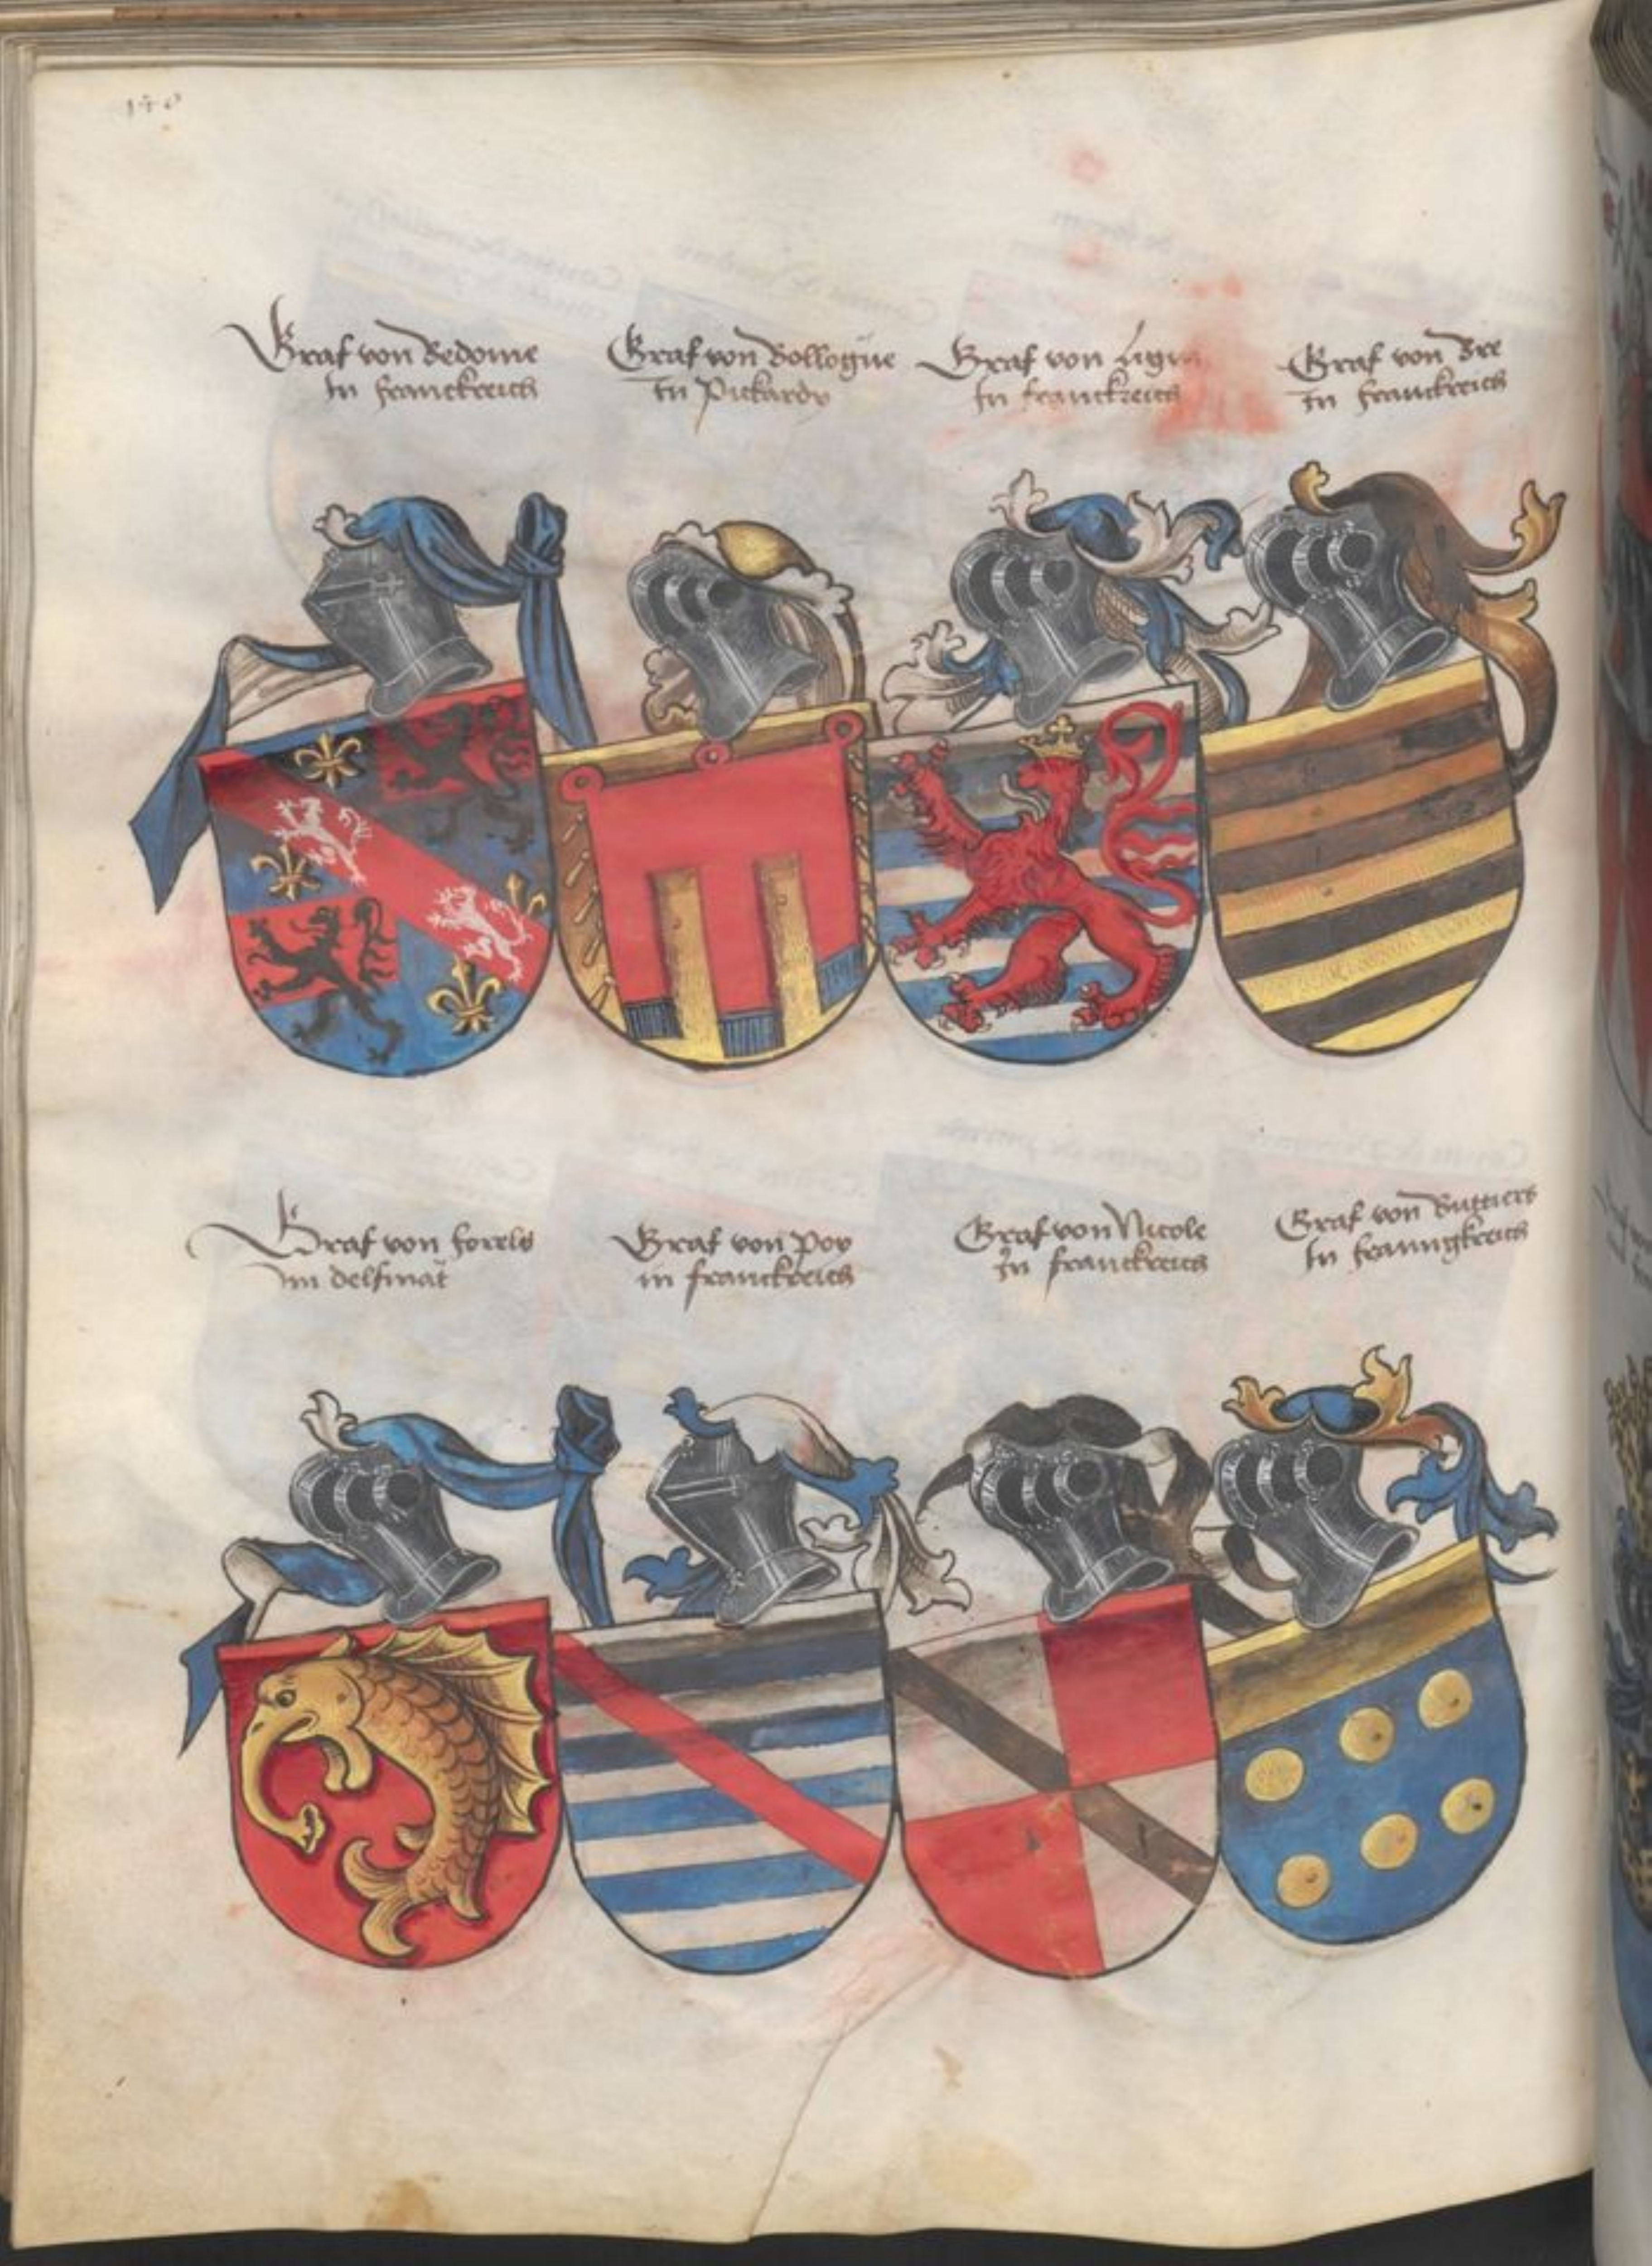 Graf von Bedome
In franckreich
Graf von Bollogne
In Pickardy
Graf von
In franckreich
Graf von Bre
In franckreich
Graf von forels
im delfinat
Graf von Poy
in franckreich
Graf von Nicole
In franckreich
Graf von Buttiers
In